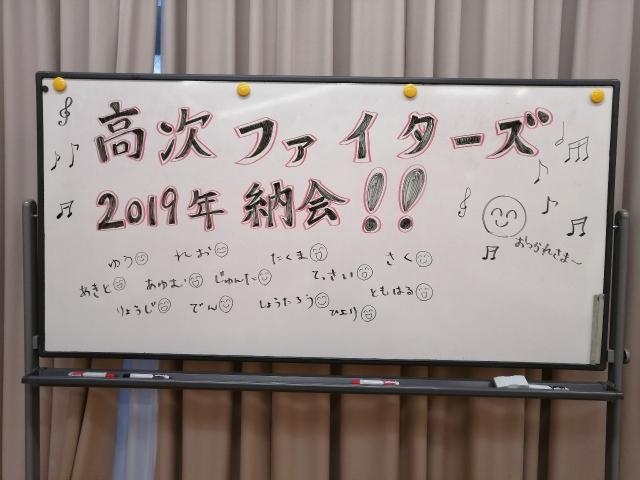 高次ファイターズ
2019年 納会!!
おつかれさま〜
ゆう れお たくま さく
あきと あゆむ じゅんた てっさい ともはる
りょうじ でん しょうたろう ひより